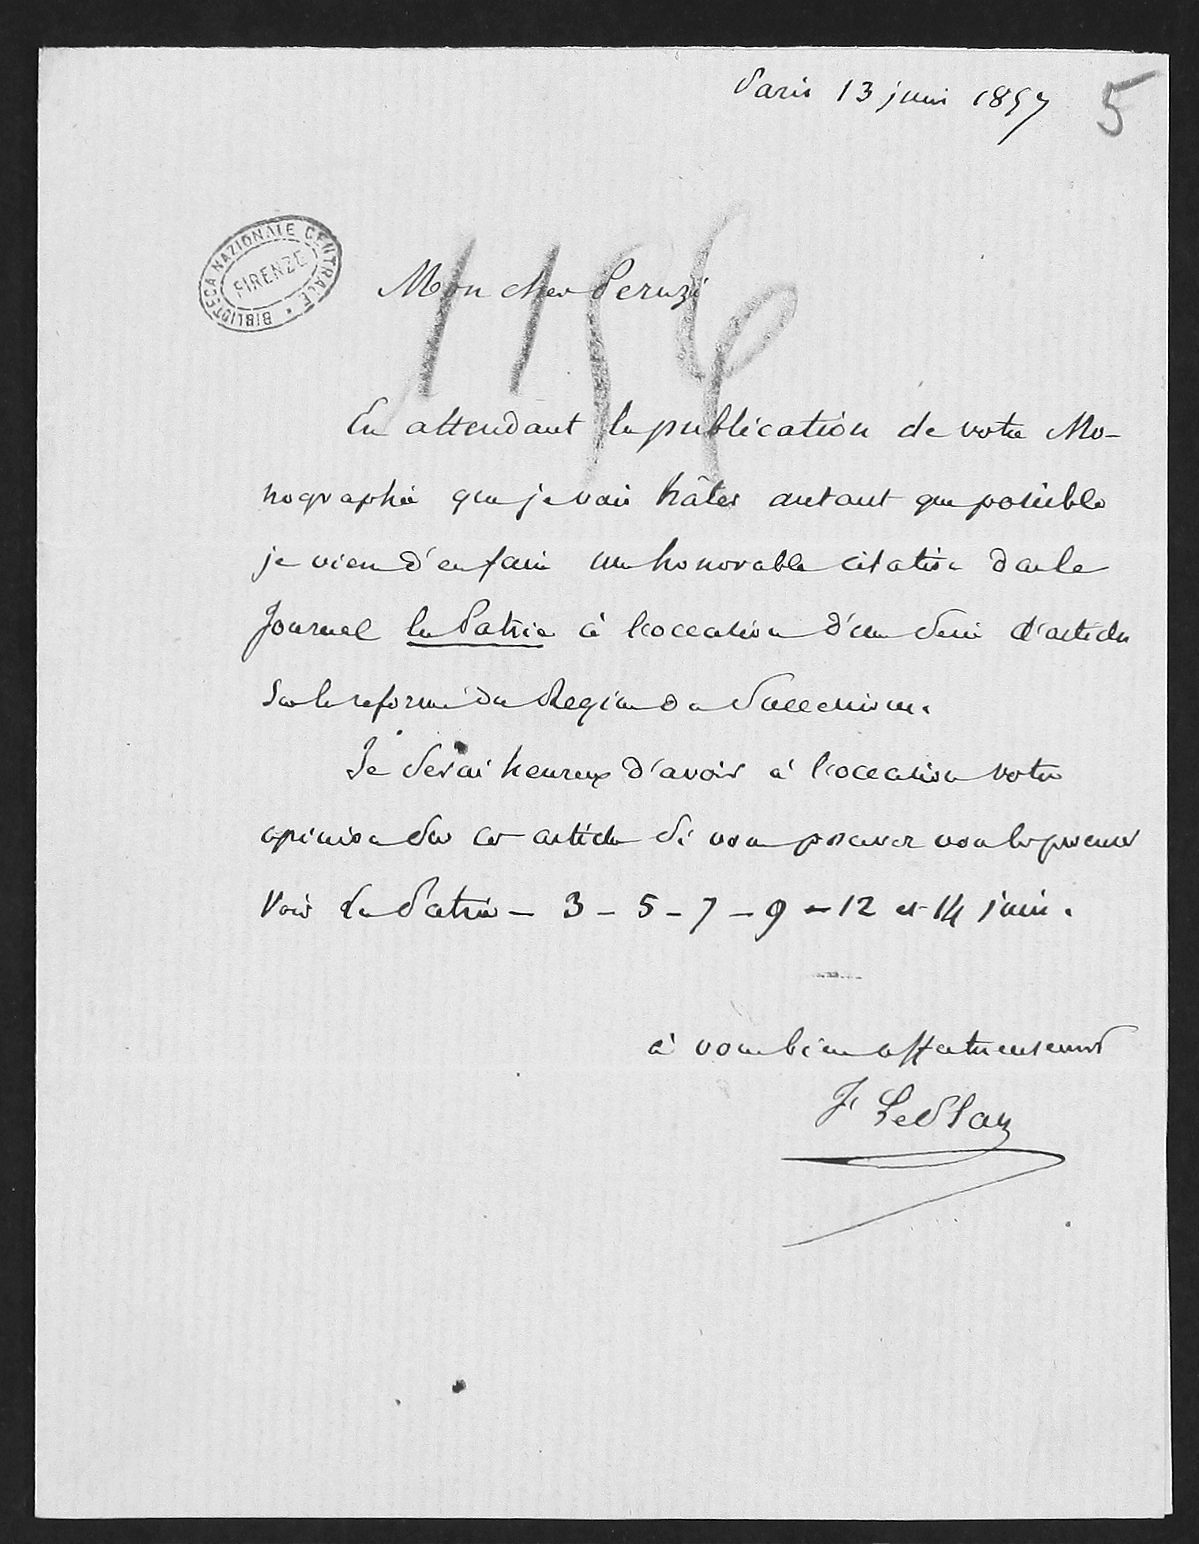 Paris 13 juin 1857
5
BIBLIOTECA NAZIONALE CENTRALE
FIRENZE
1156
Mon cher Peruzi
En attendant la publication de votre Mo-
nographie que je vais hâter autant que possible
je viens d'en faire une honorable citation dans le
Journal la Patrie à l'occasion d'une Serie d'articles
Sur la reforme du Regime des Successions.
Je Serai heureux d'avoir à l'occasion votre
opinion Sur ces articles Si vous pouvez vous les procurer
Voir La Patrie - 3 - 5 - 7 - 9 - 12 et 14 juin.
à vous bien affectueusement
F LePlay